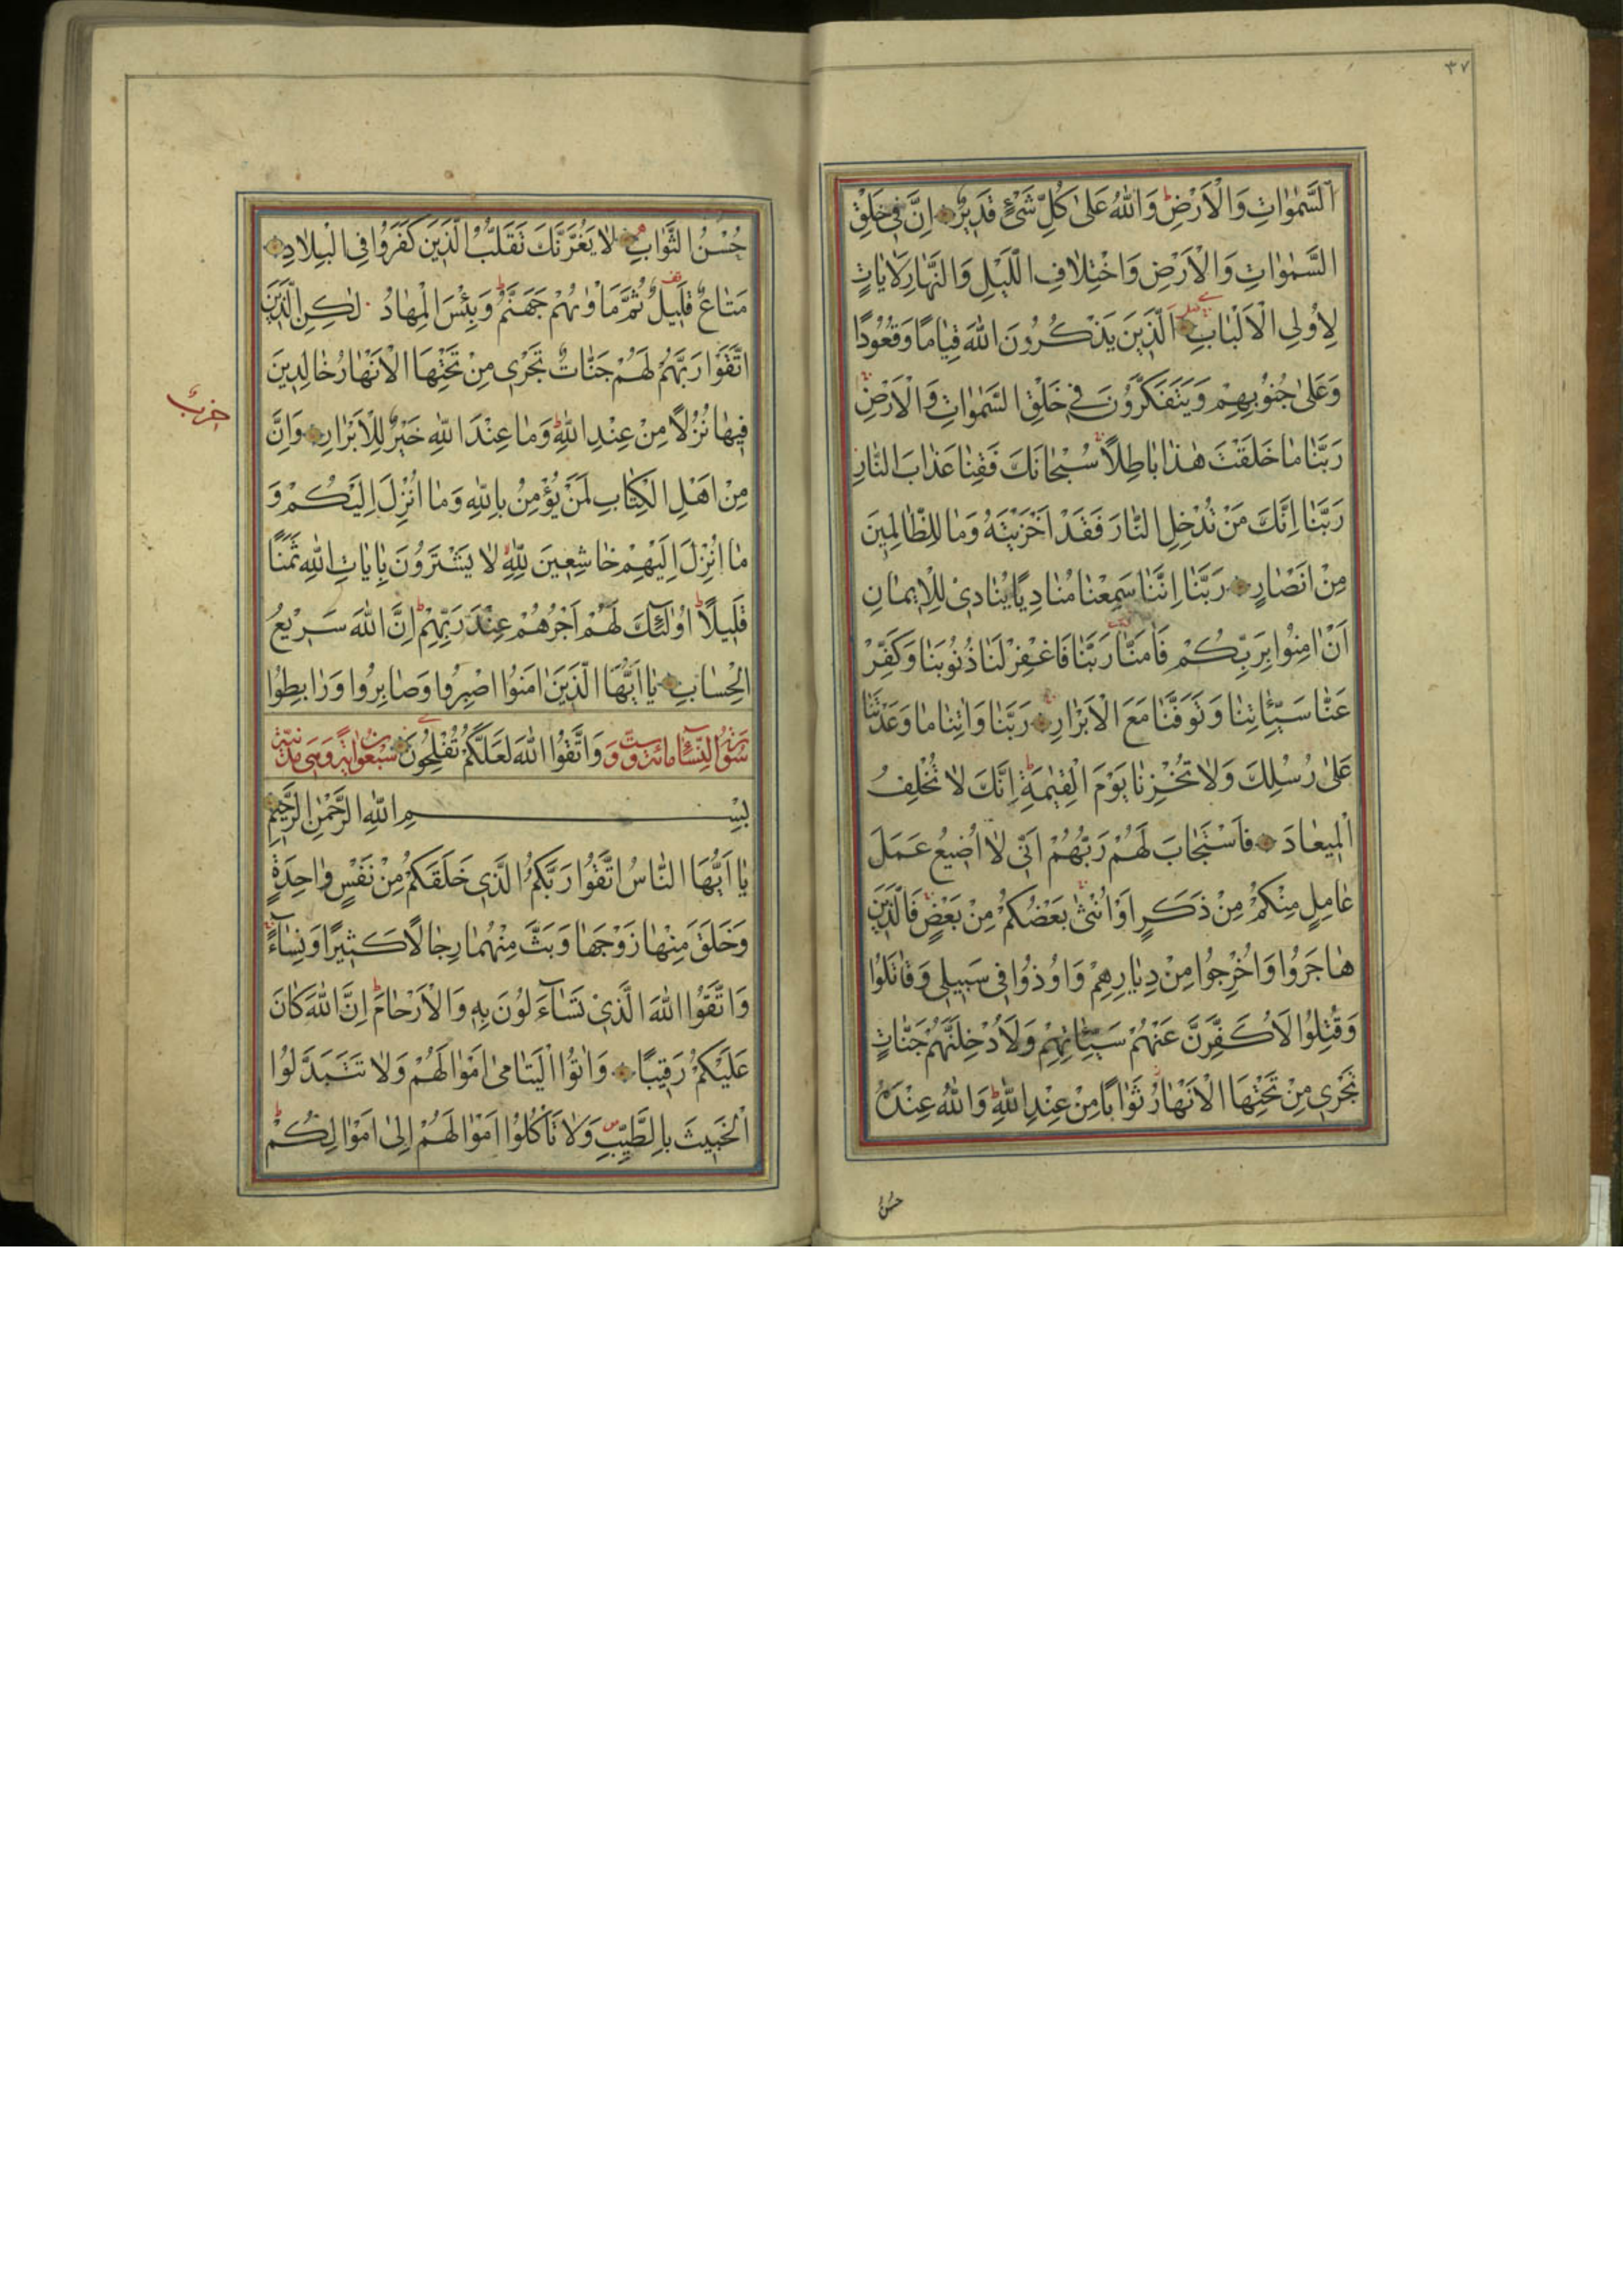 ٣٧
اَلسَّمٰوَاتِ وَالْاَرْضِ وَاللّٰهُ عَلٰى كُلِّ شَیْءٍ قَدِيرٌ اِنَّ فِي خَلْقِ
السَّمٰوَاتِ وَالْاَرْضِ وَاخْتِلَافِ الَّيْلِ وَالنَّهَارِ لَاٰيَاتٍ
لِاُولِي الْاَلْبَابِ اَلَّذِينَ يَذْكُرُونَ اللّٰهَ قِيَامًا وَقُعُودًا
وَعَلٰى جُنُوبِهِمْ وَيَتَفَكَّرُونَ فِي خَلْقِ السَّمٰوَاتِ وَالْاَرْضِ
رَبَّنَا مَا خَلَقْتَ هٰذَا بَاطِلًا سُبْحَانَكَ فَقِنَا عَذَابَ النَّارِ
رَبَّنَا اِنَّكَ مَنْ تُدْخِلِ النَّارَ فَقَدْ اَخْزَيْتَهُ وَمَا لِلظَّالِمِينَ
مِنْ اَنْصَارٍ رَبَّنَا اِنَّنَا سَمِعْنَا مُنَادِيًا يُنَادِي لِلْاِيمَانِ
اَنْ اٰمِنُوا بِرَبِّكُمْ فَاٰمَنَّا رَبَّنَا فَاغْفِرْ لَنَا ذُنُوبَنَا وَكَفِّرْ
عَنَّا سَيِّئَاتِنَا وَتَوَفَّنَا مَعَ الْاَبْرَارِ رَبَّنَا وَاٰتِنَا مَا وَعَدْتَنَا
عَلٰى رُسُلِكَ وَلَا تُخْزِنَا يَوْمَ الْقِيٰمَةِ اِنَّكَ لَا تُخْلِفُ
الْمِيعَادَ فَاسْتَجَابَ لَهُمْ رَبُّهُمْ اَنِّي لَا اُضِيعُ عَمَلَ
عَامِلٍ مِنْكُمْ مِنْ ذَكَرٍ اَوْ اُنْثٰى بَعْضُكُمْ مِنْ بَعْضٍ فَالَّذِينَ
هَاجَرُوا وَاُخْرِجُوا مِنْ دِيَارِهِمْ وَاُوذُوا فِي سَبِيلِي وَقَاتَلُوا
وَقُتِلُوا لَاُكَفِّرَنَّ عَنْهُمْ سَيِّئَاتِهِمْ وَلَاُدْخِلَنَّهُمْ جَنَّاتٍ
تَجْرِي مِنْ تَحْتِهَا الْاَنْهَارُ ثَوَابًا مِنْ عِنْدِ اللّٰهِ وَاللّٰهُ عِنْدَهُ
حُسْنُ
حُسْنُ الثَّوَابِ لَا يَغُرَّنَّكَ تَقَلُّبُ الَّذِينَ كَفَرُوا فِي الْبِلَادِ
مَتَاعٌ قَلِيلٌ ثُمَّ مَاْوٰيهُمْ جَهَنَّمُ وَبِئْسَ الْمِهَادُ لٰكِنِ الَّذِينَ
اتَّقَوْا رَبَّهُمْ لَهُمْ جَنَّاتٌ تَجْرِي مِنْ تَحْتِهَا الْاَنْهَارُ خَالِدِينَ
حزب
فِيهَا نُزُلًا مِنْ عِنْدِ اللّٰهِ وَمَا عِنْدَ اللّٰهِ خَيْرٌ لِلْاَبْرَارِ وَاِنَّ
مِنْ اَهْلِ الْكِتَابِ لَمَنْ يُؤْمِنُ بِاللّٰهِ وَمَا اُنْزِلَ اِلَيْكُمْ وَ
مَا اُنْزِلَ اِلَيْهِمْ خَاشِعِينَ لِلّٰهِ لَا يَشْتَرُونَ بِاٰيَاتِ اللّٰهِ ثَمَنًا
قَلِيلًا اُولٰئِكَ لَهُمْ اَجْرُهُمْ عِنْدَ رَبِّهِمْ اِنَّ اللّٰهَ سَرِيعُ
الْحِسَابِ يَا اَيُّهَا الَّذِينَ اٰمَنُوا اصْبِرُوا وَصَابِرُوا وَرَابِطُوا
سورة النساء مائة وست و وَاتَّقُوا اللّٰهَ لَعَلَّكُمْ تُفْلِحُونَ سبعون اية وهى مدنية
بِسْمِ اللّٰهِ الرَّحْمٰنِ الرَّحِيمِ
يَا اَيُّهَا النَّاسُ اتَّقُوا رَبَّكُمُ الَّذِي خَلَقَكُمْ مِنْ نَفْسٍ وَاحِدَةٍ
وَخَلَقَ مِنْهَا زَوْجَهَا وَبَثَّ مِنْهُمَا رِجَالًا كَثِيرًا وَنِسَاءً
وَاتَّقُوا اللّٰهَ الَّذِي تَسَاءَلُونَ بِهِ وَالْاَرْحَامَ اِنَّ اللّٰهَ كَانَ
عَلَيْكُمْ رَقِيبًا وَاٰتُوا الْيَتَامٰى اَمْوَالَهُمْ وَلَا تَتَبَدَّلُوا
الْخَبِيثَ بِالطَّيِّبِ وَلَا تَاْكُلُوا اَمْوَالَهُمْ اِلٰى اَمْوَالِكُمْ